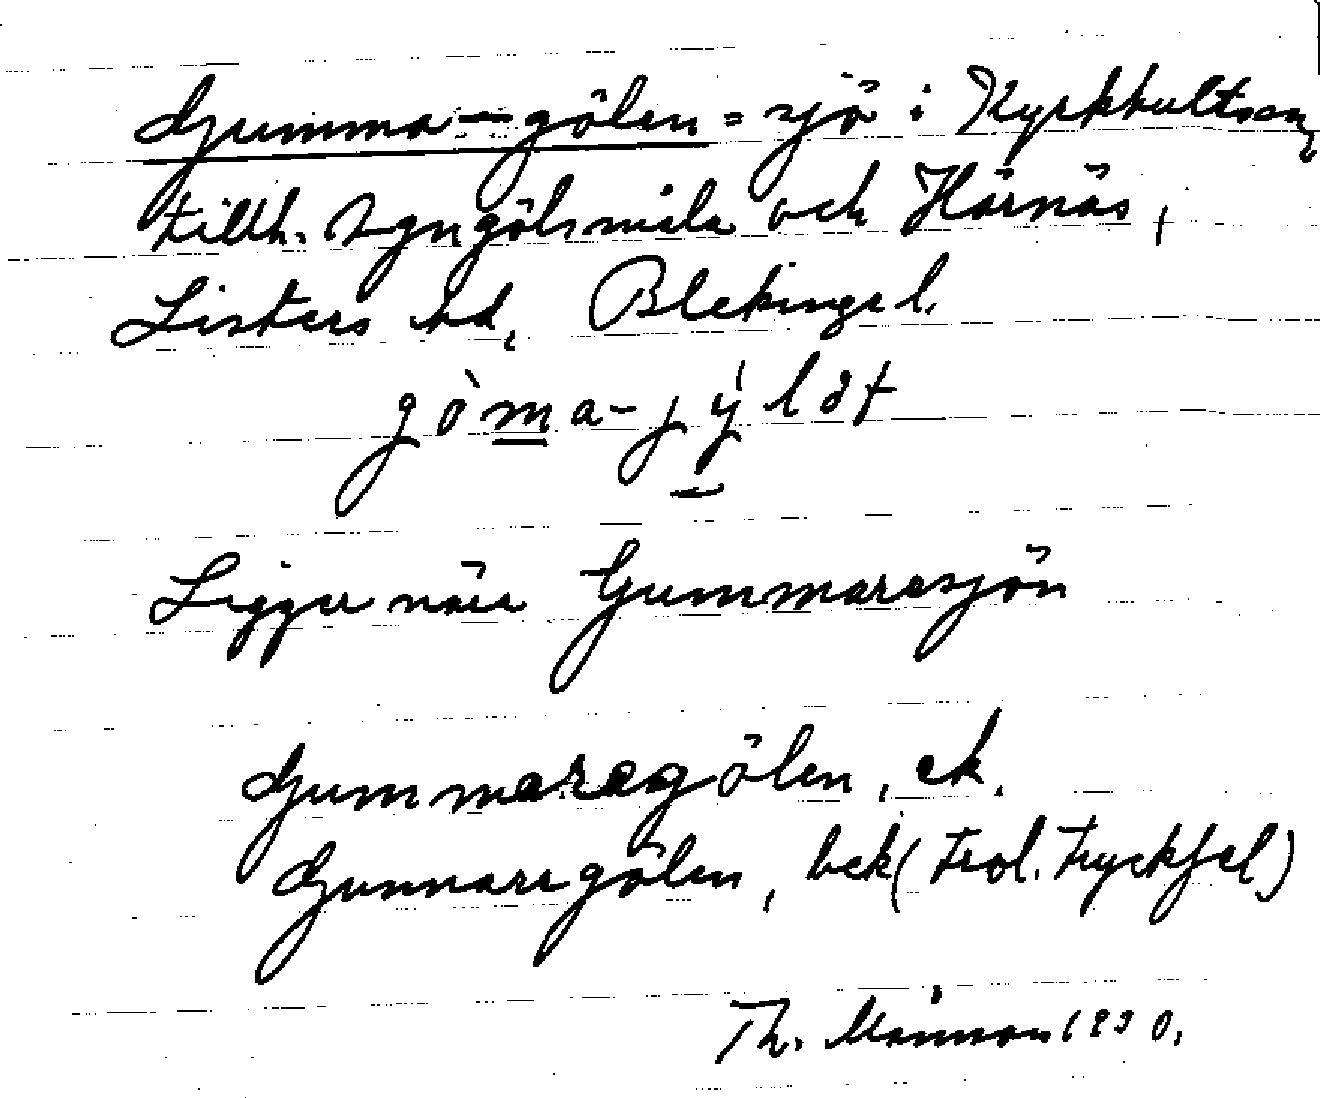 Gumma-gölen = sjö i Kyrkhultssn,
tillh. Syngölsmåla och Härnäs,
Listers hd, Blekinge l.
gòma-jýlət
Ligger nära Gummaresjön
Gummaregölen, ek.
Gunnaregölen, bek (trol. tryckfel)
Th. Månsson 1930.